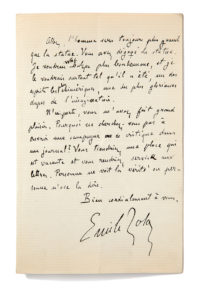 Alors, l'homme sera toujours plus grand
que la statue. Vous avez dégagé la statue.
Je voudrais plus bonhomme, et je
le voudrais surtout tel qu'il a été, un des
esprits les plus
de l'imagination.
N'importe, vous m'avez fait grand
plaisir. Pourquoi ne cherchez-vous pas à
mener une campagne de critique dans
un journal? Vous tiendriez une place qui
est vacante et vous rendriez service aux
lettres. Personne ne voit la vérité ou per-
sonne n'ose la dire.
Bien cordialement à vous,
Emile Zola